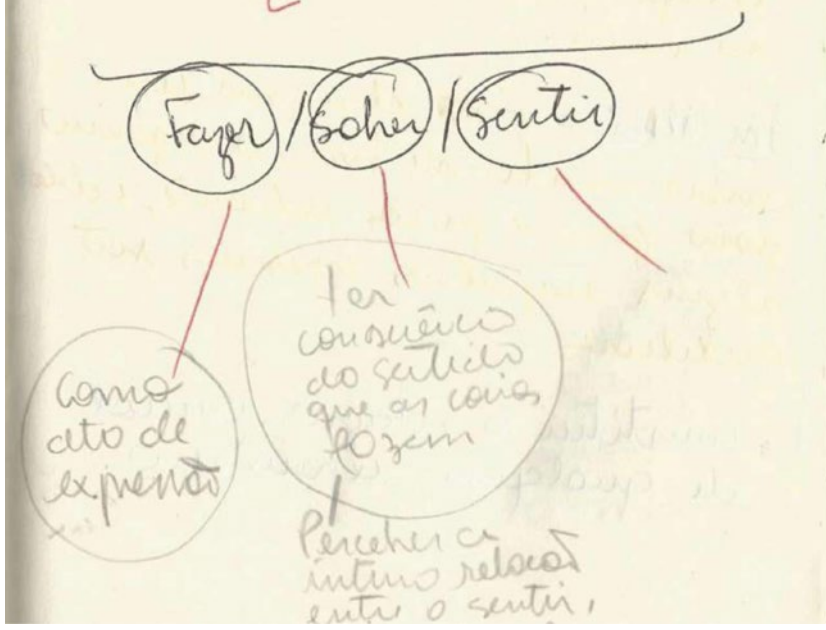 Fazer / Saber / Sentir
como
ato de
expressão
ter
consciência
do sentido
que as coisas
fazem
Perceber a
íntima relação
entre o sentir,